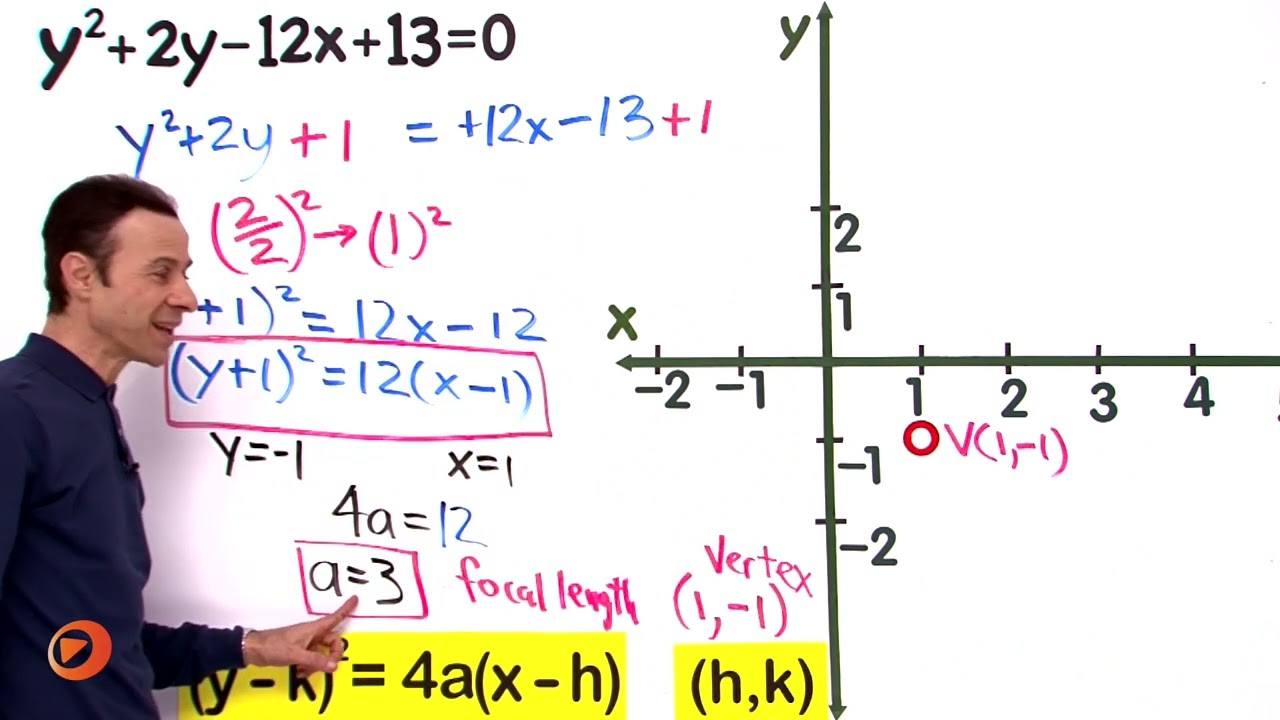 y²+2y-12x+13=0
y²+2y+1 = +12x-13+1
(2/2)²→(1)²
+1)²=12x-12
(y+1)²=12(x-1)
y=-1 x=1
4a=12
a=3 focal length
Vertex
(1,-1)
(y-k)²=4a(x-h) (h,k)
y
2
1
x
-2 -1 1 2 3 4
V(1,-1)
-1
-2